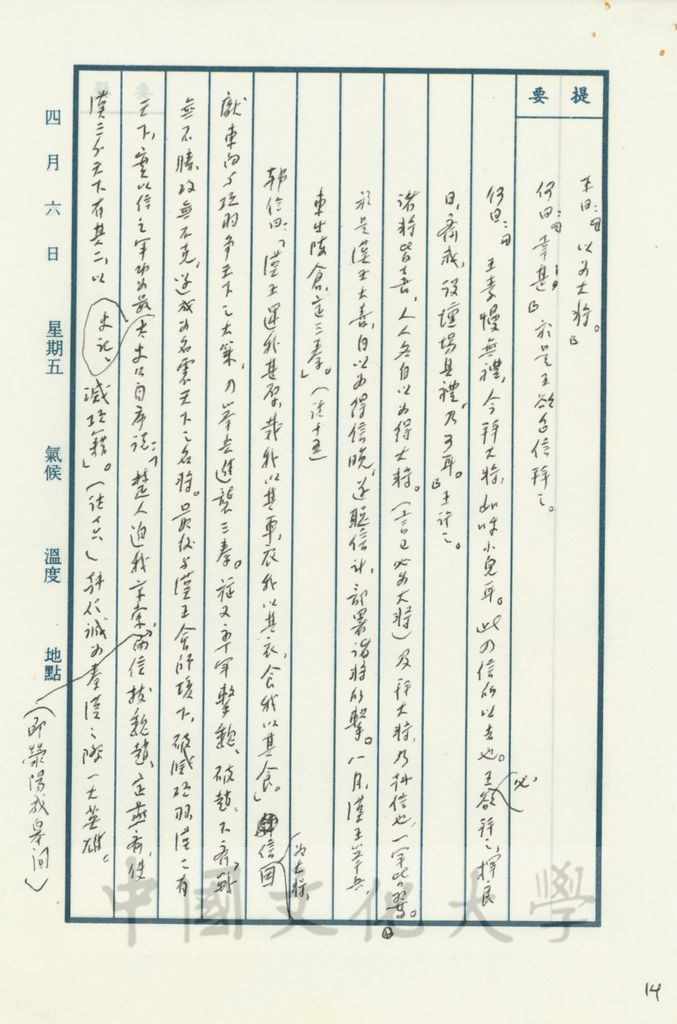 提要
王曰:「以為大將。」
何曰:「幸甚」於是王欲召信拜之。
何曰:「王素慢無禮,今拜大將,如呼小兒耳。此乃信所以去也。王必欲拜之,擇良
日,齋戒,設壇場具禮,乃可耳。」王許之。
諸將皆喜,人人各自以為得大將。(言己必為大將)及拜大將,乃韓信也,一軍皆驚。
於是漢王大喜,自以為得信晚,遂聽信計,部署諸將所擊。八月,漢王舉兵,
東出陳倉,定三秦」。(註十五)
韓信曰:「漢王遇我甚厚,載我以其車,衣我以其衣,食我以其食。」信為大將,
獻東向與項羽爭天下之大策,乃舉兵進襲三秦。旋又率軍擊魏、破趙、下齊,戰
無不勝,攻無不克,遂成為名震天下之名將。最後與漢王會師垓下,破滅項羽,漢之有
天下,實以信之軍功為最大。史記自序謂:「楚人迫我京索,而信拔魏趙,定燕齊,使
漢三分天下有其二,以滅項籍」。(註十六)韓信誠為秦漢之際一大英雄。
史記
(即滎陽成皋間)
四月六日 星期五 氣候 溫度 地點
中國文化大學
14